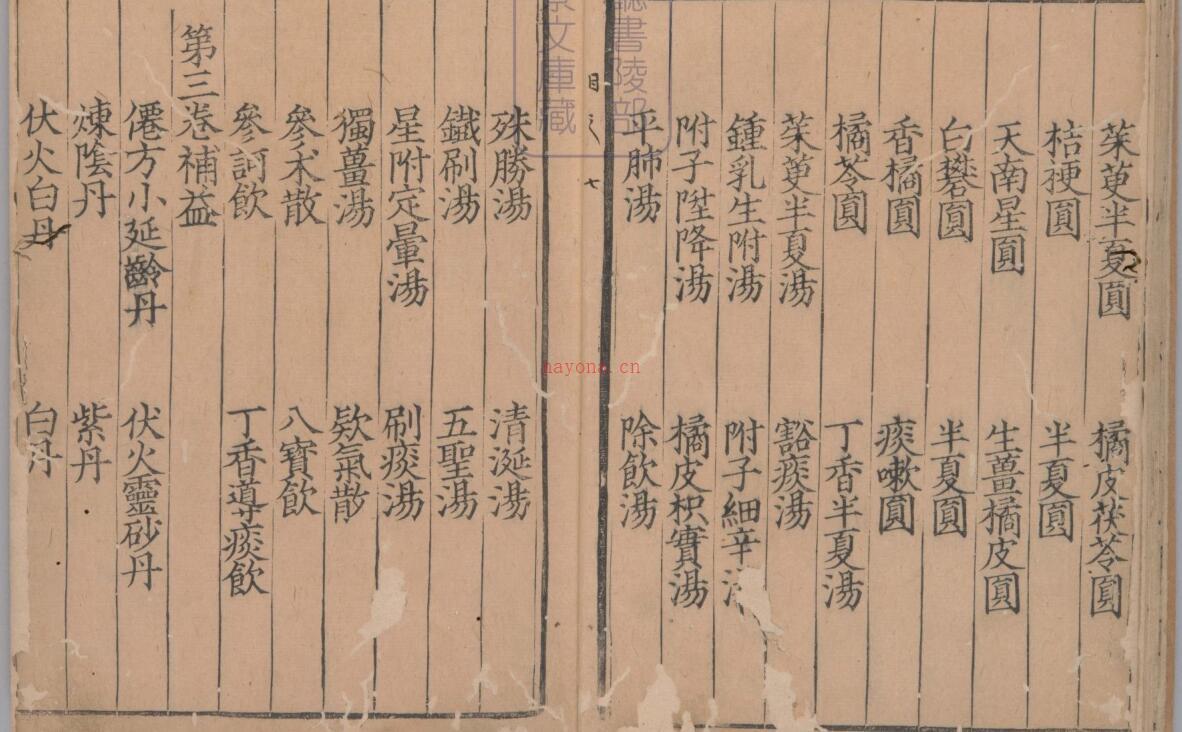 茱萸半夏圓　橘皮茯苓圓
桔梗圓　半夏圓
天南星圓　生薑橘皮圓
白礬圓　半夏圓
香橘圓　痰嗽圓
橘苓圓　丁香半夏湯
茱萸半夏湯　豁痰湯
鍾乳生附湯　附子細辛湯
附子陞降湯　橘皮枳實湯
平肺湯　除飲湯
目之　七
殊勝湯　清涎湯
鐵刷湯　五聖湯
星附定暈湯　刷痰湯
獨薑湯　欵氣散
參朮散　八寶飲
參訶飲　丁香導痰飲
第三卷補益
僊方小延齡丹　伏火靈砂丹
煉陰丹　紫丹
伏火白丹　白丹
書陵部
文庫藏
nayona.cn